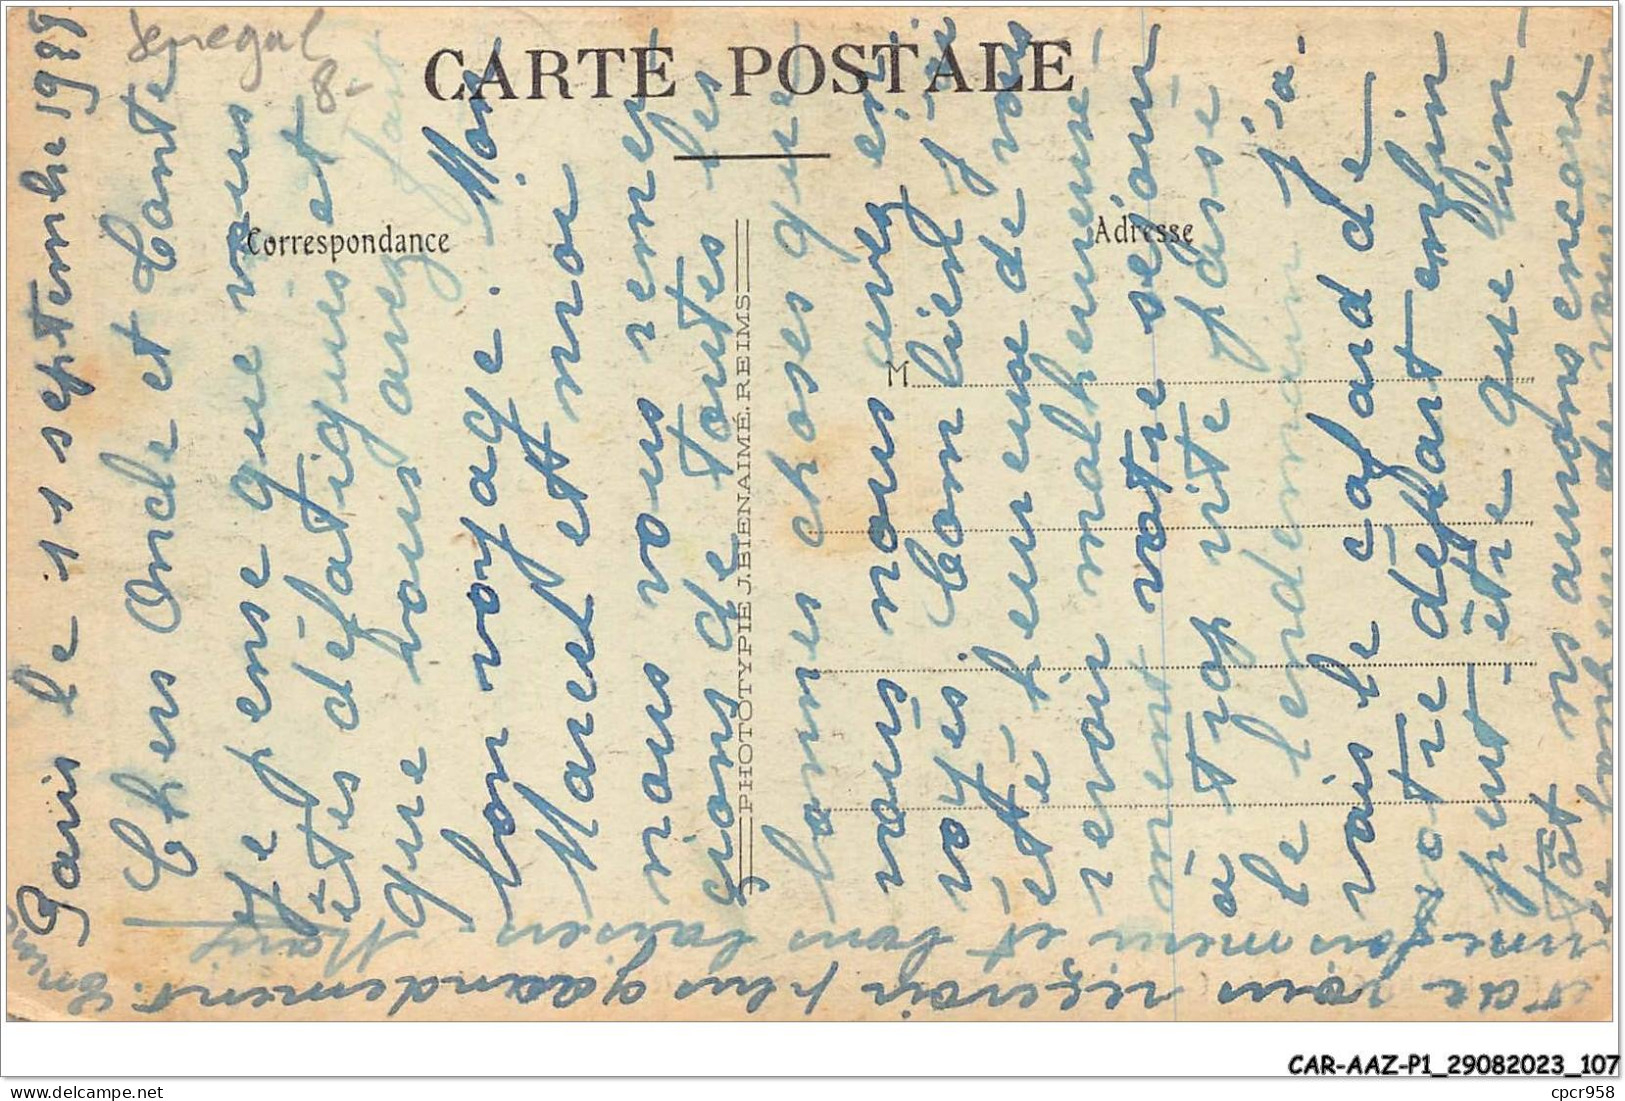 Senegal
8-
CARTE POSTALE
Correspondance
Adresse
M
PHOTOTYPIE J. BIENAIMÉ, REIMS
Paris le 11 septembre 19
Chers Oncle et Tante
Je pense que vous
êtes défatigués et
que vous avez fait
bon voyage. Mon
Maret et moi
vous vous remer
cions de toutes les
choses que
vous nous avez en
voyés. Combien j'ai
été heureuse de vous
revoir malheureuse-
ment votre séjour
à trop vite passé
le lendemain j'a-
vais le cafard de
votre départ enfin
peut-être que bien-
tôt nous aurons encore
une fois
et de vous recevoir plus grandement.
et bons baisers.
CAR-AAZ-P1_29082023_107
delcampe.net
cpcr958